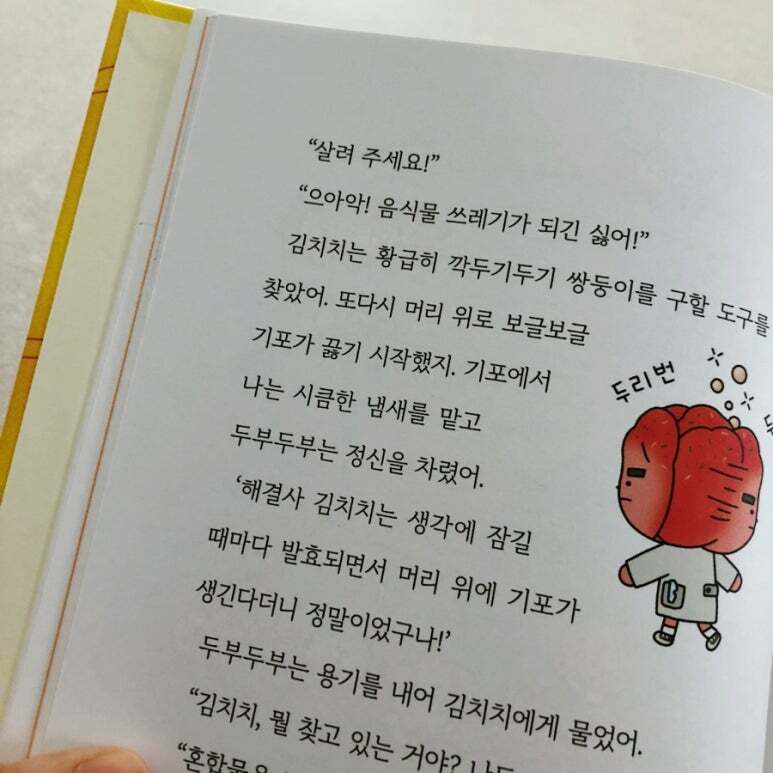 “살려 주세요!”
“으아악! 음식물 쓰레기가 되긴 싫어!”
김치치는 황급히 깍두기두기 쌍둥이를 구할 도구를
찾았어. 또다시 머리 위로 보글보글
기포가 끓기 시작했지. 기포에서
나는 시큼한 냄새를 맡고
두부두부는 정신을 차렸어.
‘해결사 김치치는 생각에 잠길
때마다 발효되면서 머리 위에 기포가
생긴다더니 정말이었구나!’
두부두부는 용기를 내어 김치치에게 물었어.
“김치치, 뭘 찾고 있는 거야?
“혼합물
두리번